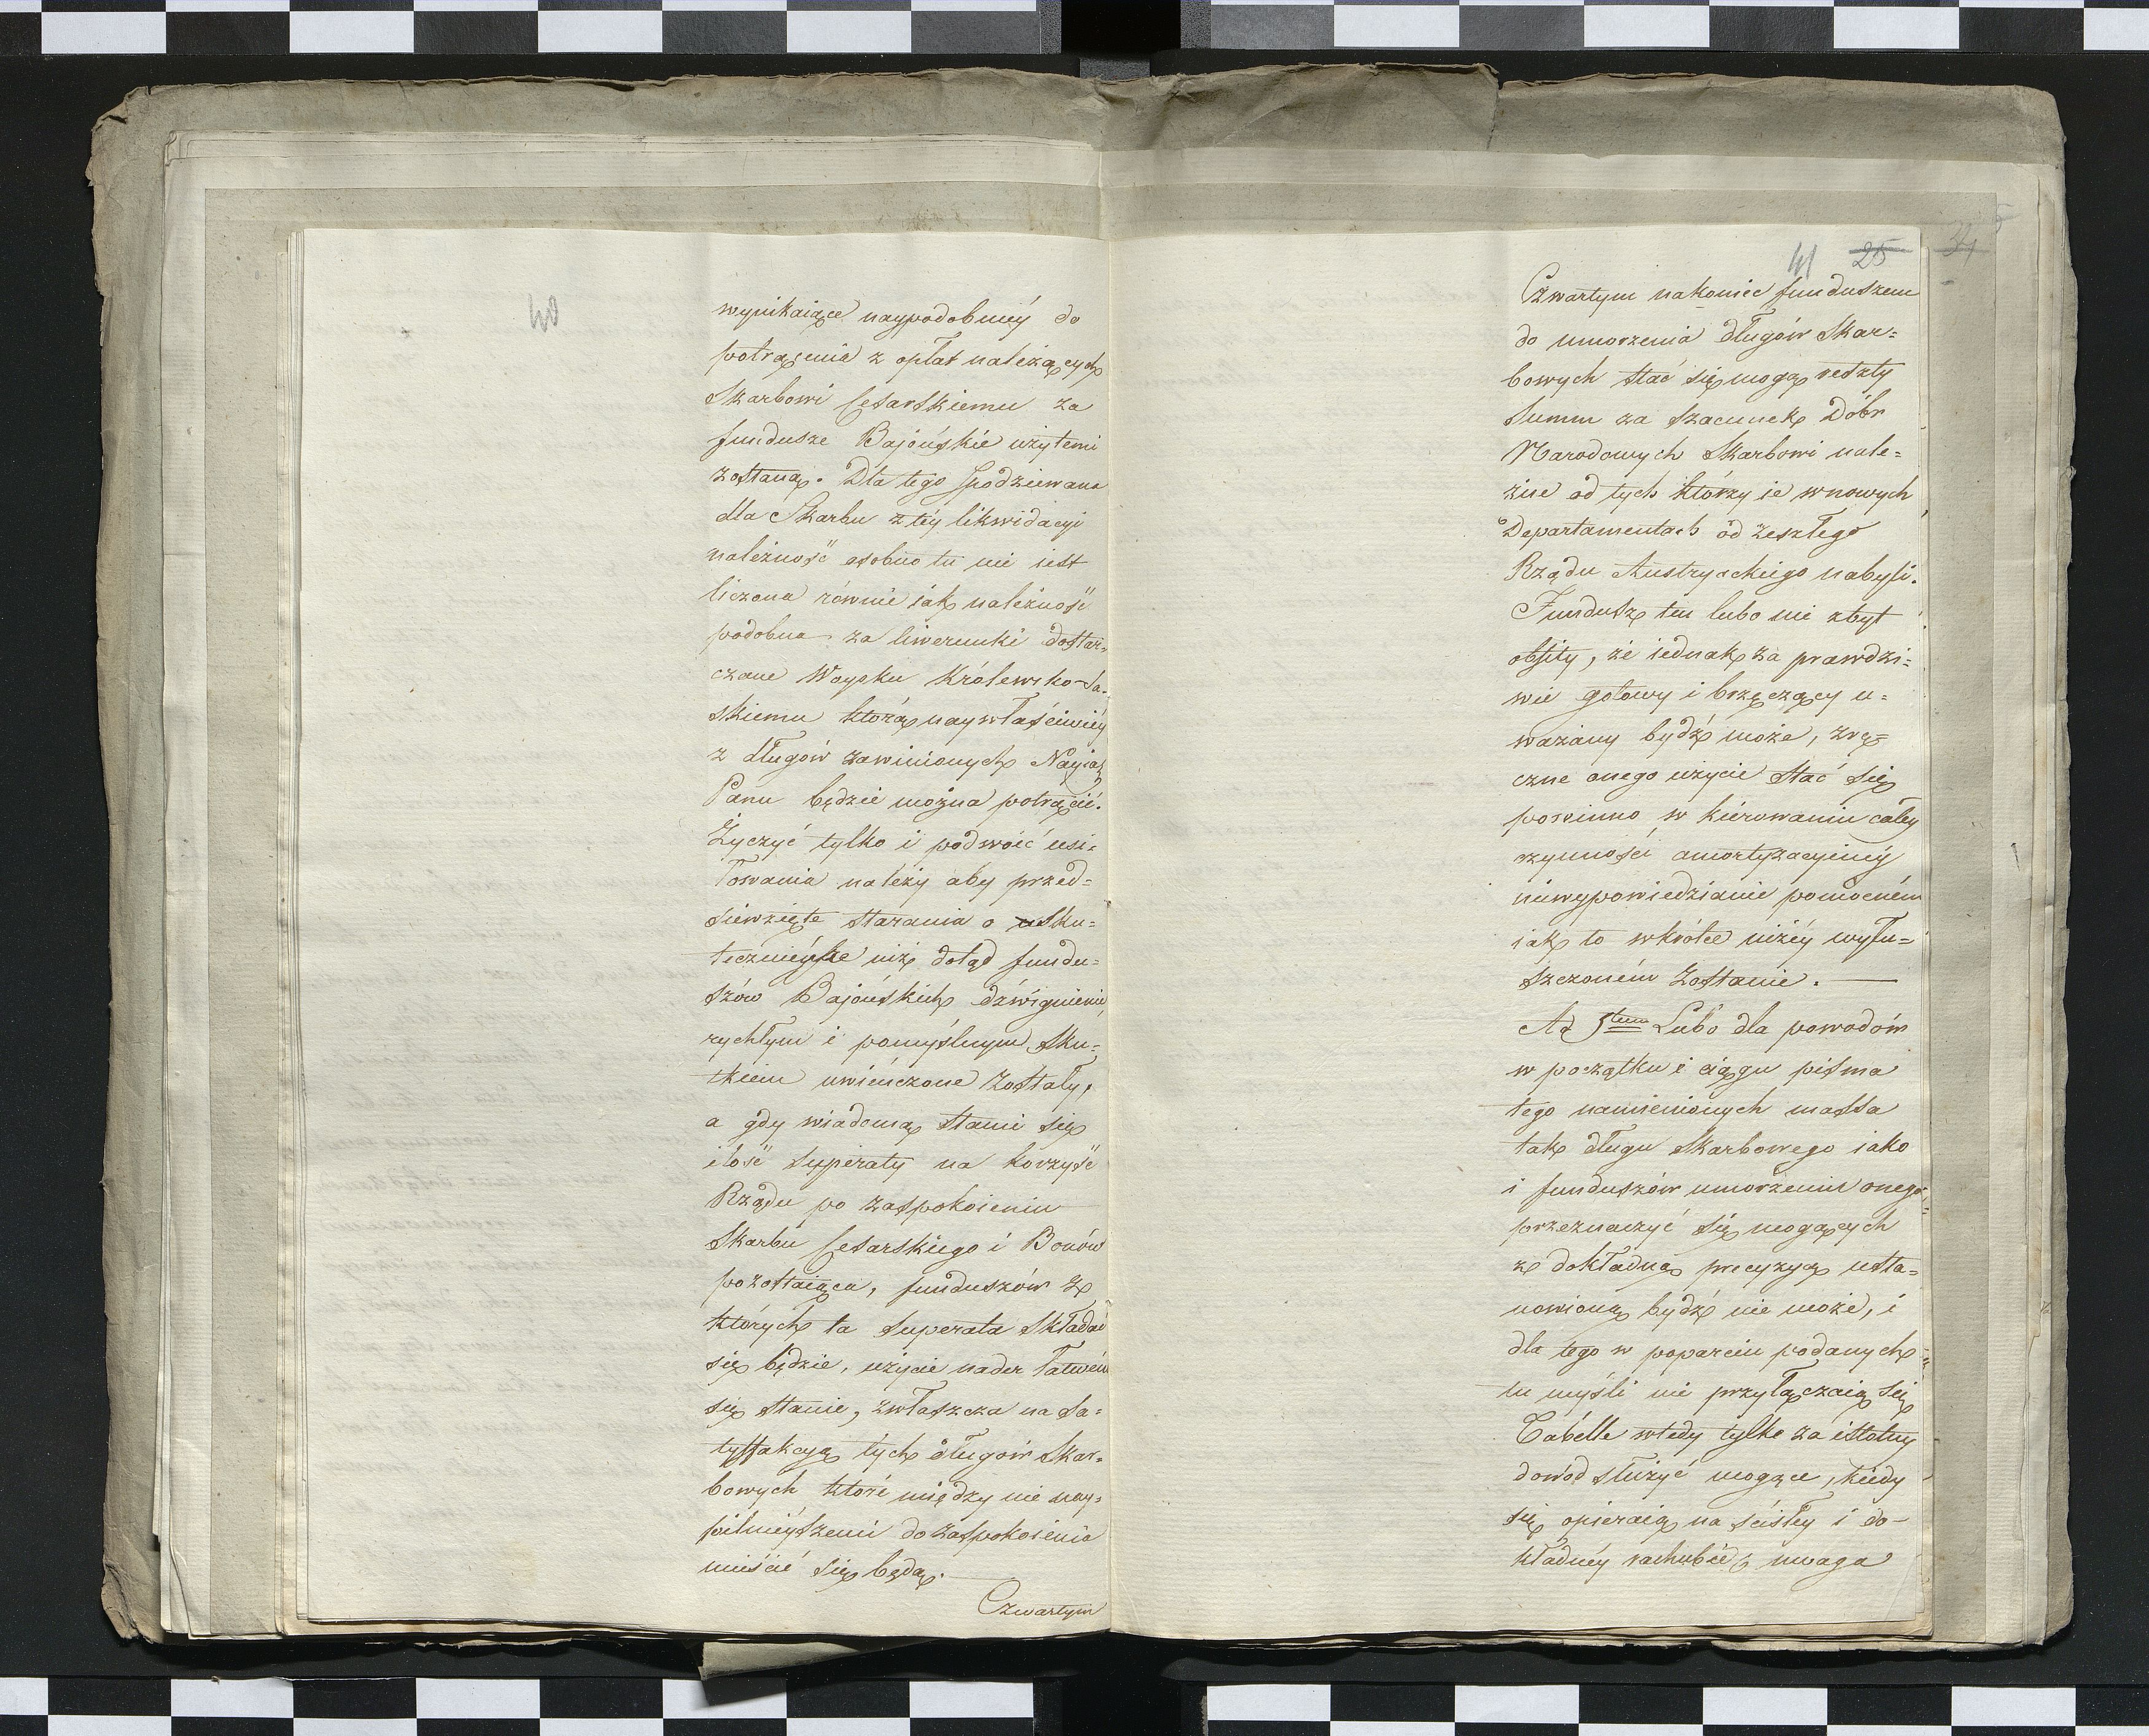 40
wynikaiące naypodobniéy do
potrącenia z opłat należących
Skarbowi Cesarskiemu za
fundusze Bajońskie użytemi
zostaną. Dla tego spodziewana
dla Skarbu z téy likwidacyi
należność osobno tu nie iest
liczona równie iak należność
podobna za liwerunki dostar=
czane Woysku Królewsko-Sa=
skiemu którą naywłaściwiéy
z długów zawinionych Nayias
Panu będzie można potrącić.
Życzyć tylko i podwoić usi=
łowania należy aby przed=
siewzięte starania o sku=
tecznieysze niż dotąd fundu=
szów Bajońskich dźwignienie,
rychłym i pomyślnym sku=
tkiem uwieńczone zostały,
a gdy wiadomą stanie się
ilość superaty na korzyść
Rządu po zaspokoieniu
Skarbu Cesarskiego i Bonów
pozostaiąca, funduszów z
których ta superata składać
się będzie, użycie nader łatwém
się stanie, zwłaszcza na sa=
tysfakcyą tych długów Skar=
bowych które między nie nay=
pilnieyszemi do zaspokoienia
mieścić się będą.
Czwartym
41 25
34
Czwartym nakoniec funduszem
do umorzenia długów Skar=
bowych stać się mogą reszty
summ za szacunek Dóbr
Narodowych Skarbowi nale=
żne od tych którzy ie w nowych
Departamentach od zeszłego
Rządu Austryackiego nabyli.
Fundusz ten lubo nie zbyt
obfity, że iednak za prawdzi=
wie gotowy i brzęczący u=
ważany bydź może, zrę=
czne onego użycie stać się
powinno w kierowaniu całey
czynności amortyzacyinéy
niewypowiedzianie pomocném
iak to wkrótce niżéy wyłu=
szczoném zostanie. —
Ad 5tum Lubo dla powodów
w początku i ciągu pisma
tego namienionych massa
tak długu Skarbowego iako
i funduszów umorzeniu onego
przeznaczyć się mogących
z dokładną precyzyą usta=
nowioną bydź nie może, i
dla tego w poparciu podanych
tu myśli nie przyłączaią się
Tabelle wtedy tylko za istotny
dowód służyć mogące, kiedy
się opieraią na ścisłey i do-
kładnéy rachubie, uwaga